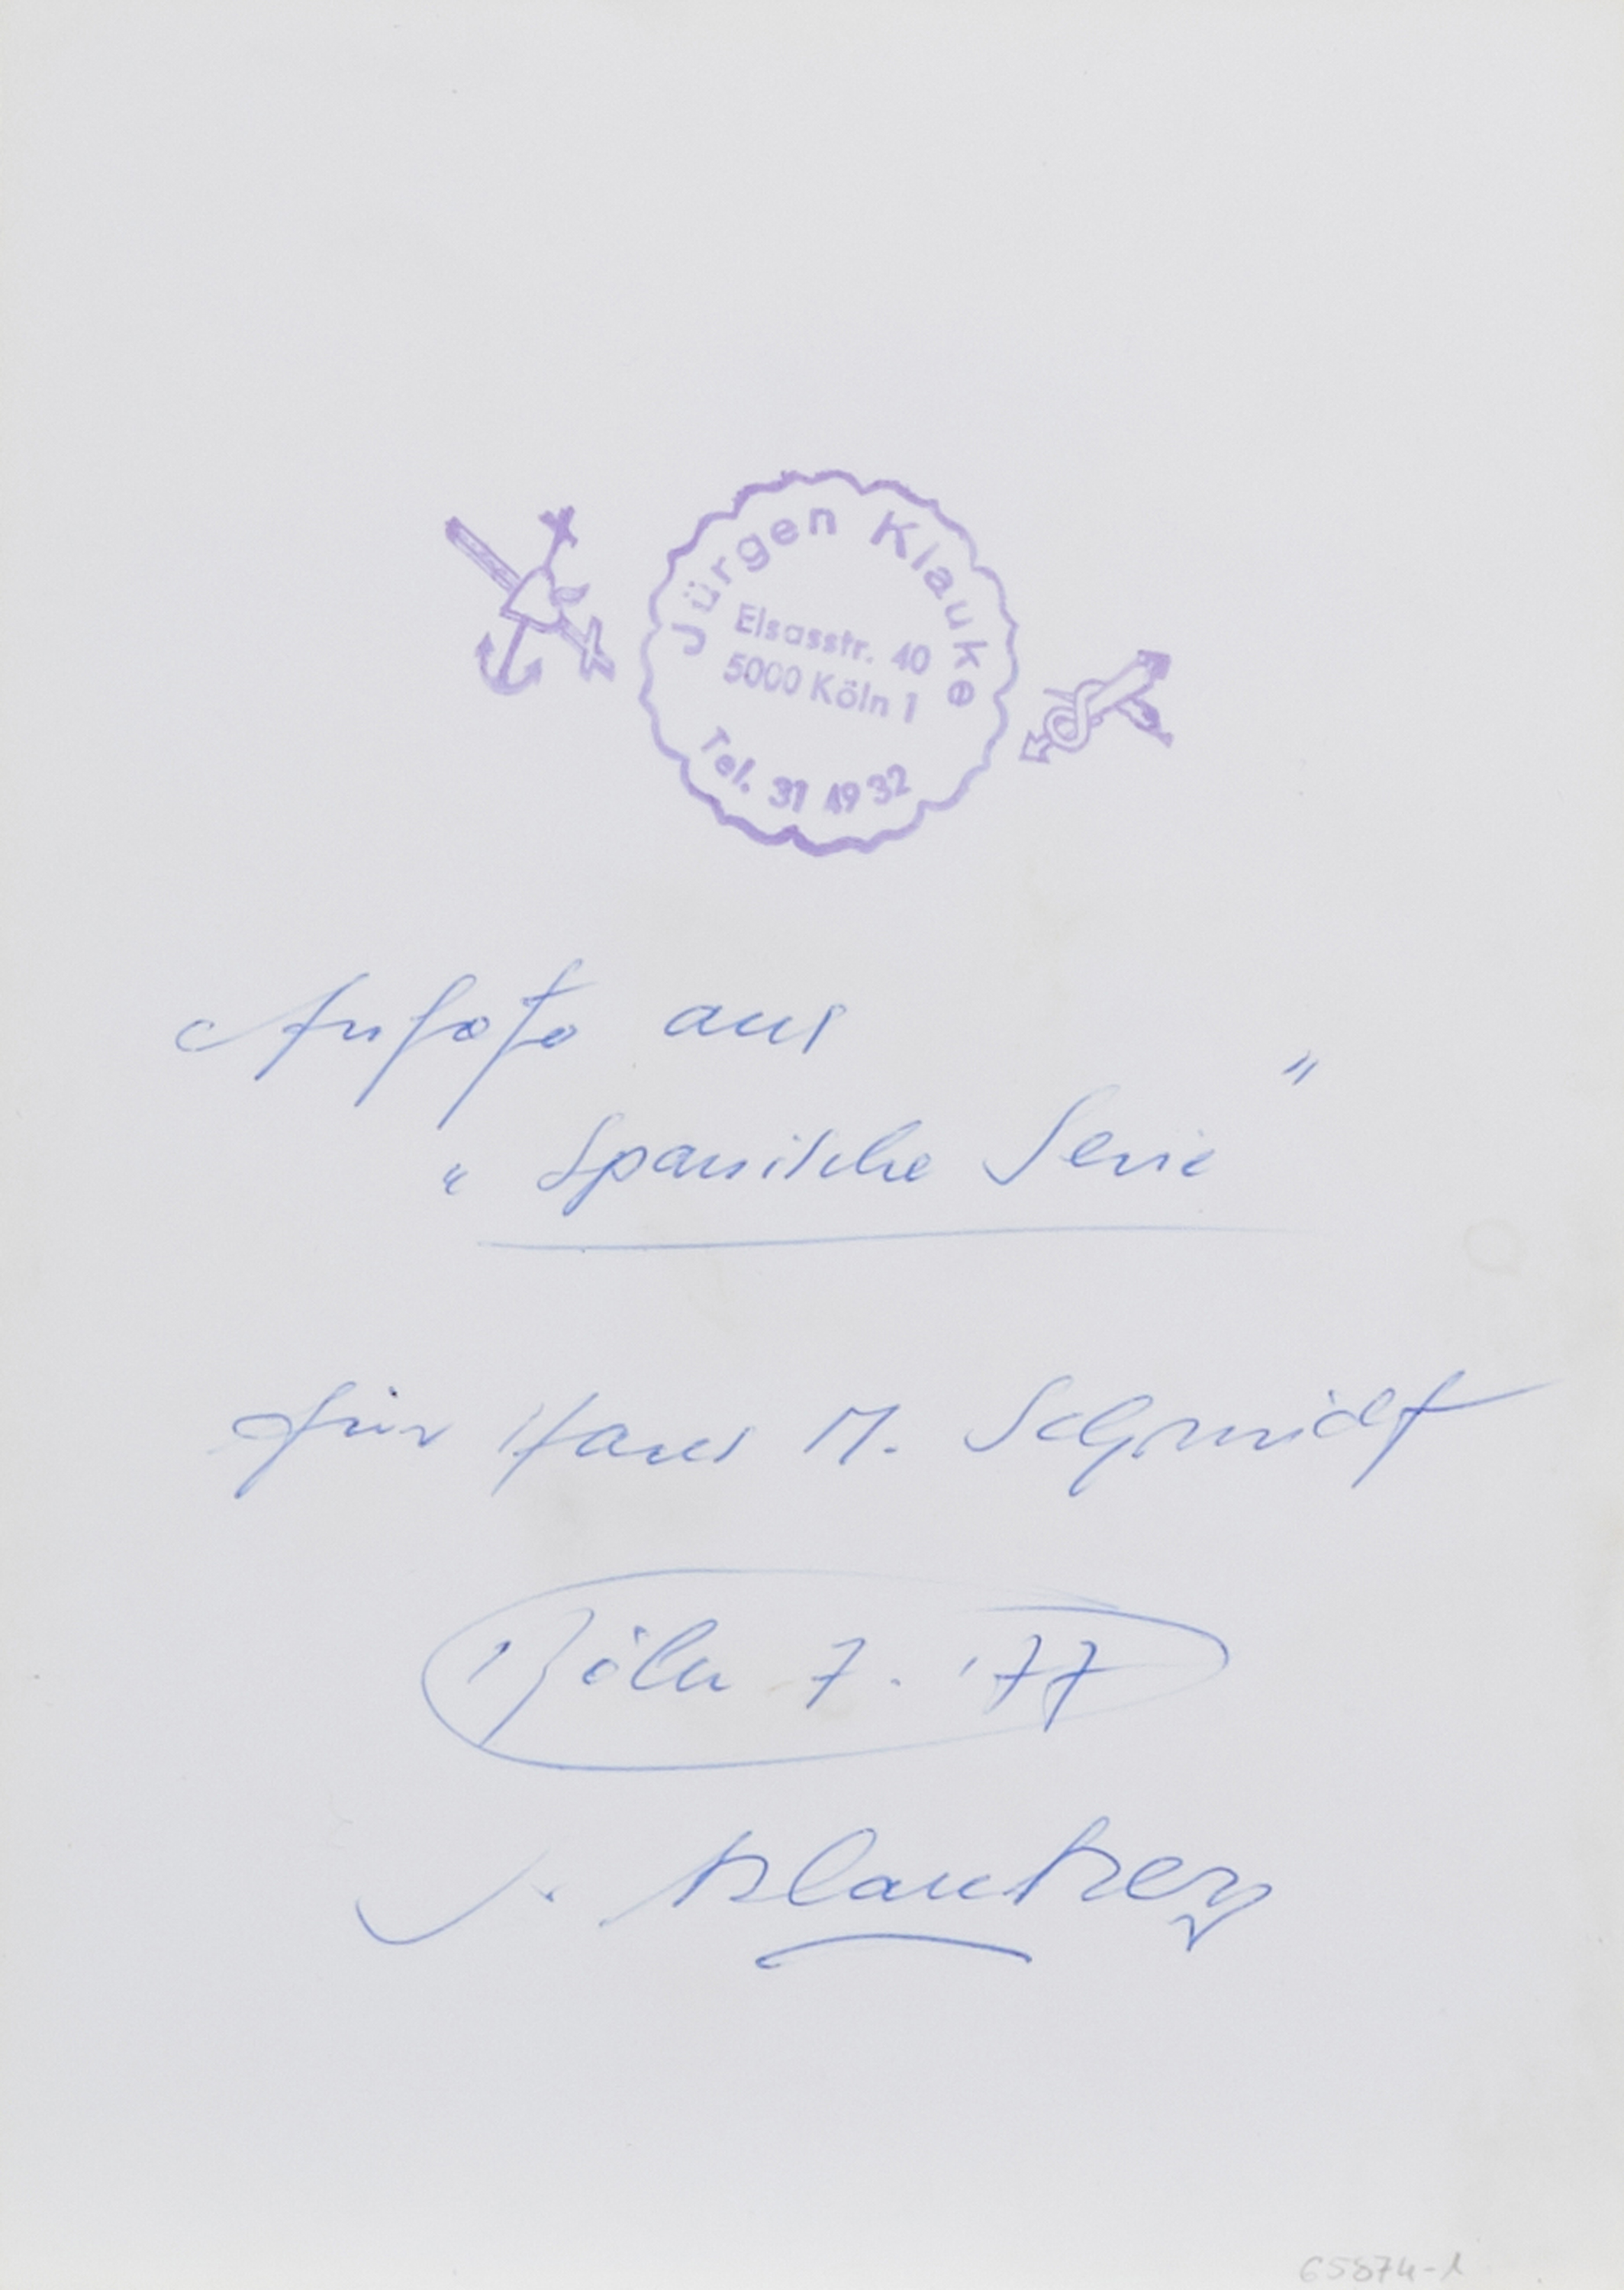 Jürgen Klauke
Elsasstr. 40
5000 Köln 1
Tel. 31 49 32
aus
"Spanische Serie"
für Hans M. Schmidt
Köln 7. '77
J. Klauke
65874-1